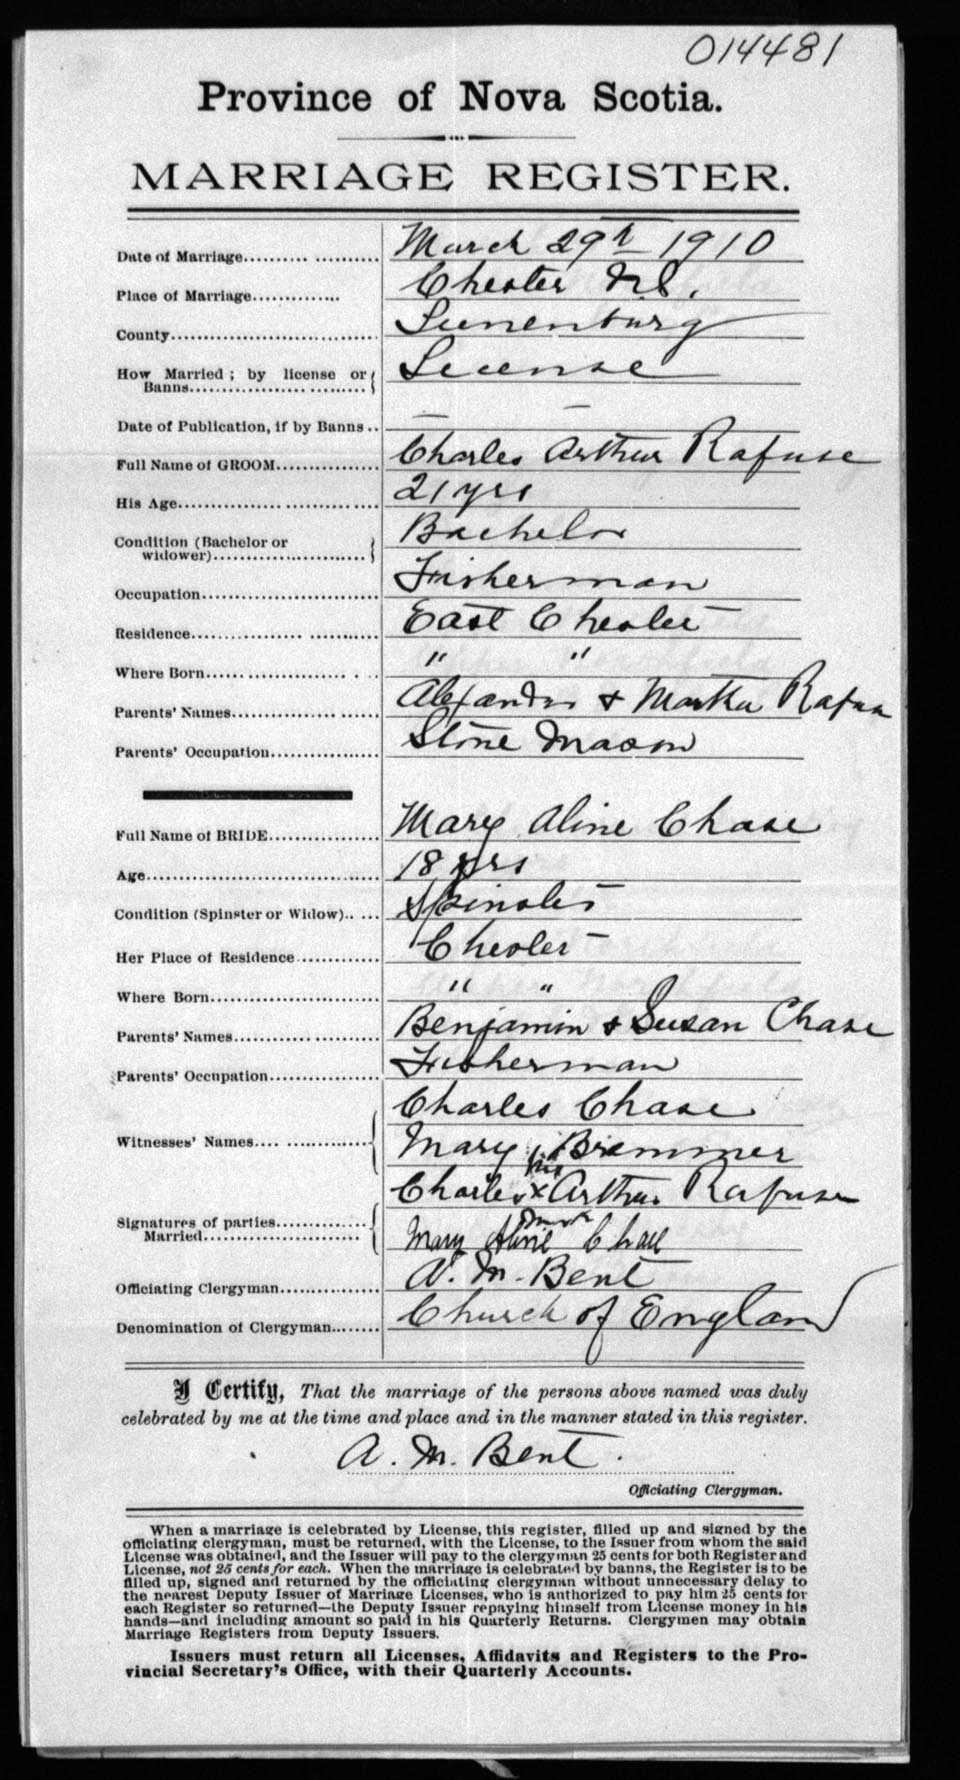 014481
Province of Nova Scotia.
MARRIAGE REGISTER.
Date of Marriage.......... .......... March 29th 1910
Place of Marriage............. Chester N.S.
County................................ Lunenburg
How Married ; by license or
Banns.............................. License
Date of Publication, if by Banns .. — —
Full Name of GROOM................ Charles Arthur Rafuse
His Age................................ 21 yrs
Condition (Bachelor or
widower)........................ Bachelor
Occupation........................... Fisherman
Residence............................. East Chester
Where Born......................... " "
Parents' Names...................... Alexander & Martha Rafuse
Parents' Occupation................. Stone Mason
Full Name of BRIDE................. Mary Aline Chase
Age..................................... 18 yrs
Condition (Spinster or Widow).. ... Spinster
Her Place of Residence............. Chester
Where Born.......................... " "
Parents' Names...................... Benjamin & Susan Chase
Parents' Occupation................. Fisherman
Charles Chase
Witnesses' Names.... ............... Mary Bremmer
his
Charles x Arthur Rafuse
mark
Signatures of parties..............
Married........................... Mary Aline Chase
Officiating Clergyman............... A. M. Bent
Denomination of Clergyman........ Church of England
I Certify, That the marriage of the persons above named was duly
celebrated by me at the time and place and in the manner stated in this register.
A. M. Bent.
Officiating Clergyman.
When a marriage is celebrated by License, this register, filled up and signed by the
officiating clergyman, must be returned, with the License, to the Issuer from whom the said
License was obtained, and the Issuer will pay to the clergyman 25 cents for both Register and
License, not 25 cents for each. When the marriage is celebrated by banns, the Register is to be
filled up, signed and returned by the officiating clergyman without unnecessary delay to
the nearest Deputy Issuer of Marriage Licenses, who is authorized to pay him 25 cents for
each Register so returned—the Deputy Issuer repaying himself from License money in his
hands—and including amount so paid in his Quarterly Returns. Clergymen may obtain
Marriage Registers from Deputy Issuers.
Issuers must return all Licenses, Affidavits and Registers to the Pro-
vincial Secretary's Office, with their Quarterly Accounts.